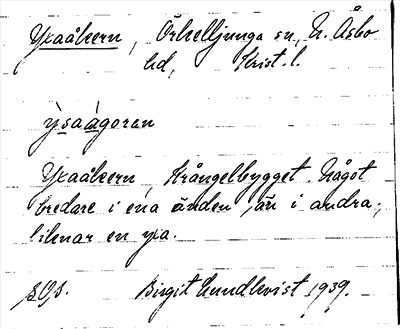 Yxaåkern, Örkelljunga sn, N. Åsbo
hd, Krist. l.
ỳsaågoran
Yxaåkern, Krångelbygget. Något
bredare i ena änden, än i andra;
liknar en yxa.
S.O.S. Birgit Lundkvist 1939.